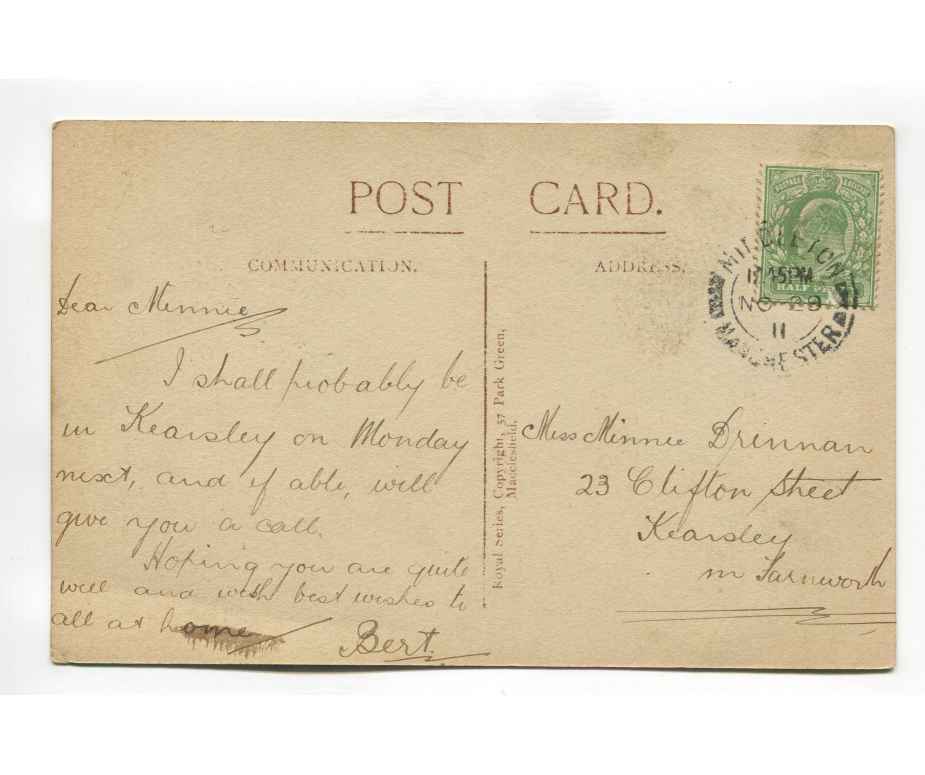 POST CARD.
COMMUNICATION.
ADDRESS.
Dear Minnie
I shall probably be
in Kearsley on Monday
next, and if able, will
give you a call.
Hoping you are quite
well and with best wishes to
all at home
Bert.
Royal Series, Copyright, 57 Park Green,
Macclesfield.
HALF
MIDDLETON
PM
NO 29
11
MANCHESTER
Miss Minnie Drinnan
23 Clifton Street
Kearsley
nr Farnworth